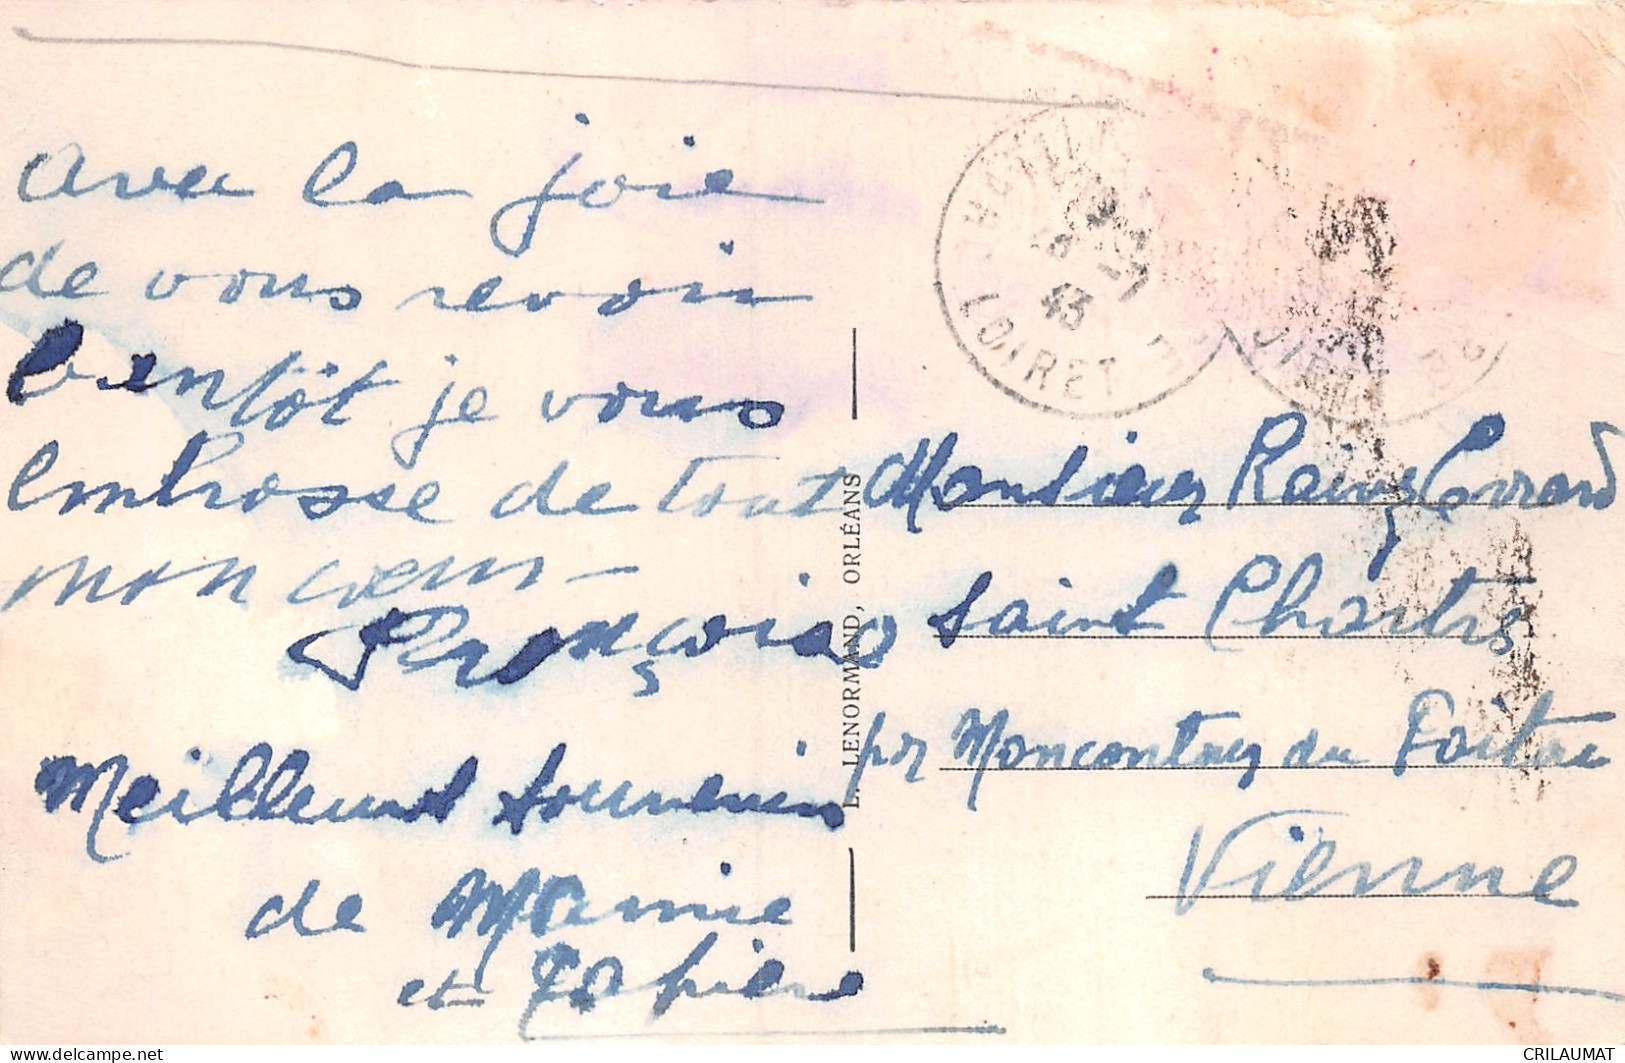 Avec la joie
de vous revoir
bientôt je vous
embrasse de tout
mon cœur
Françoise
Meilleurs souvenirs
de Mamie
et
L. LENORMAND, ORLÉANS
LOIRET
43
Monsieur Gérard
Saint Chartres
par Moncontour du Poitou
Vienne
www.delcampe.net
CRILAUMAT